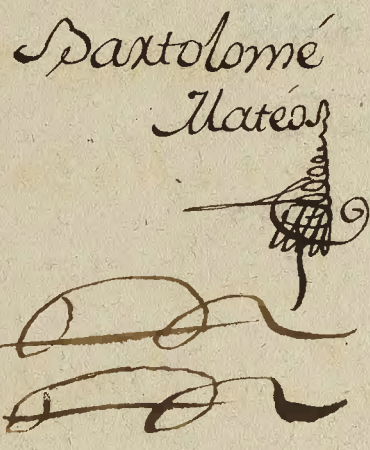 Bartolomé
Matéos